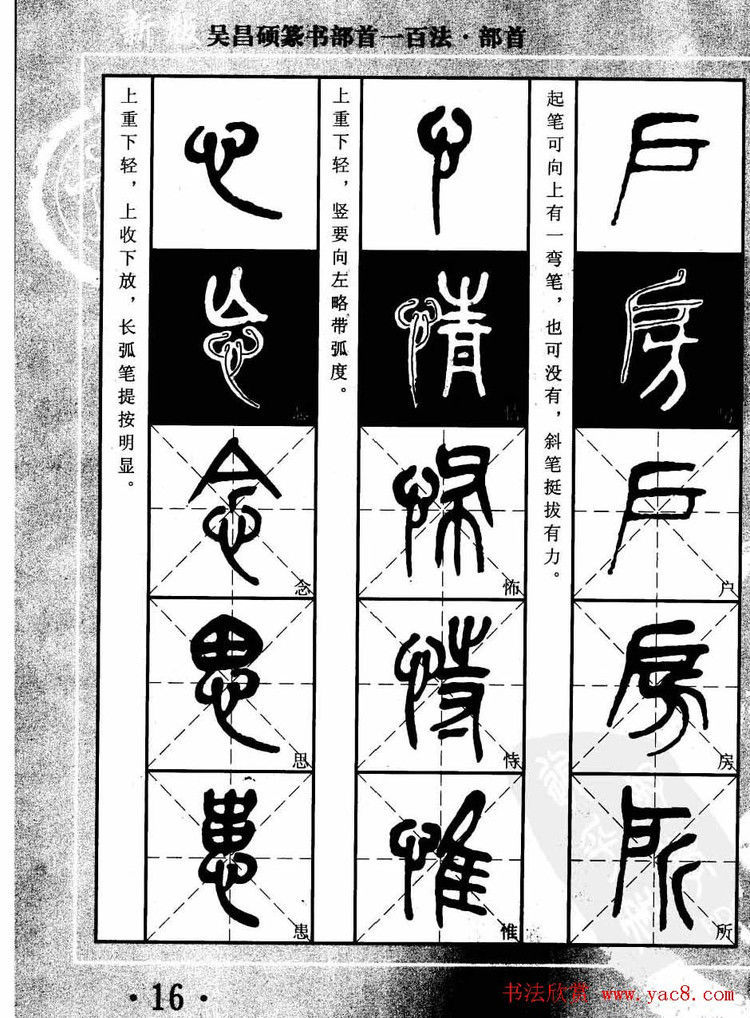 吴昌硕篆书部首一百法·部首
起笔可向上有一弯笔，也可没有，斜笔挺拔有力。
户
房
所
上重下轻，竖要向左略带弧度。
怖
恃
惟
上重下轻，上收下放，长弧笔提按明显。
念
思
患
·16·
书法欣赏 www.yac8.com